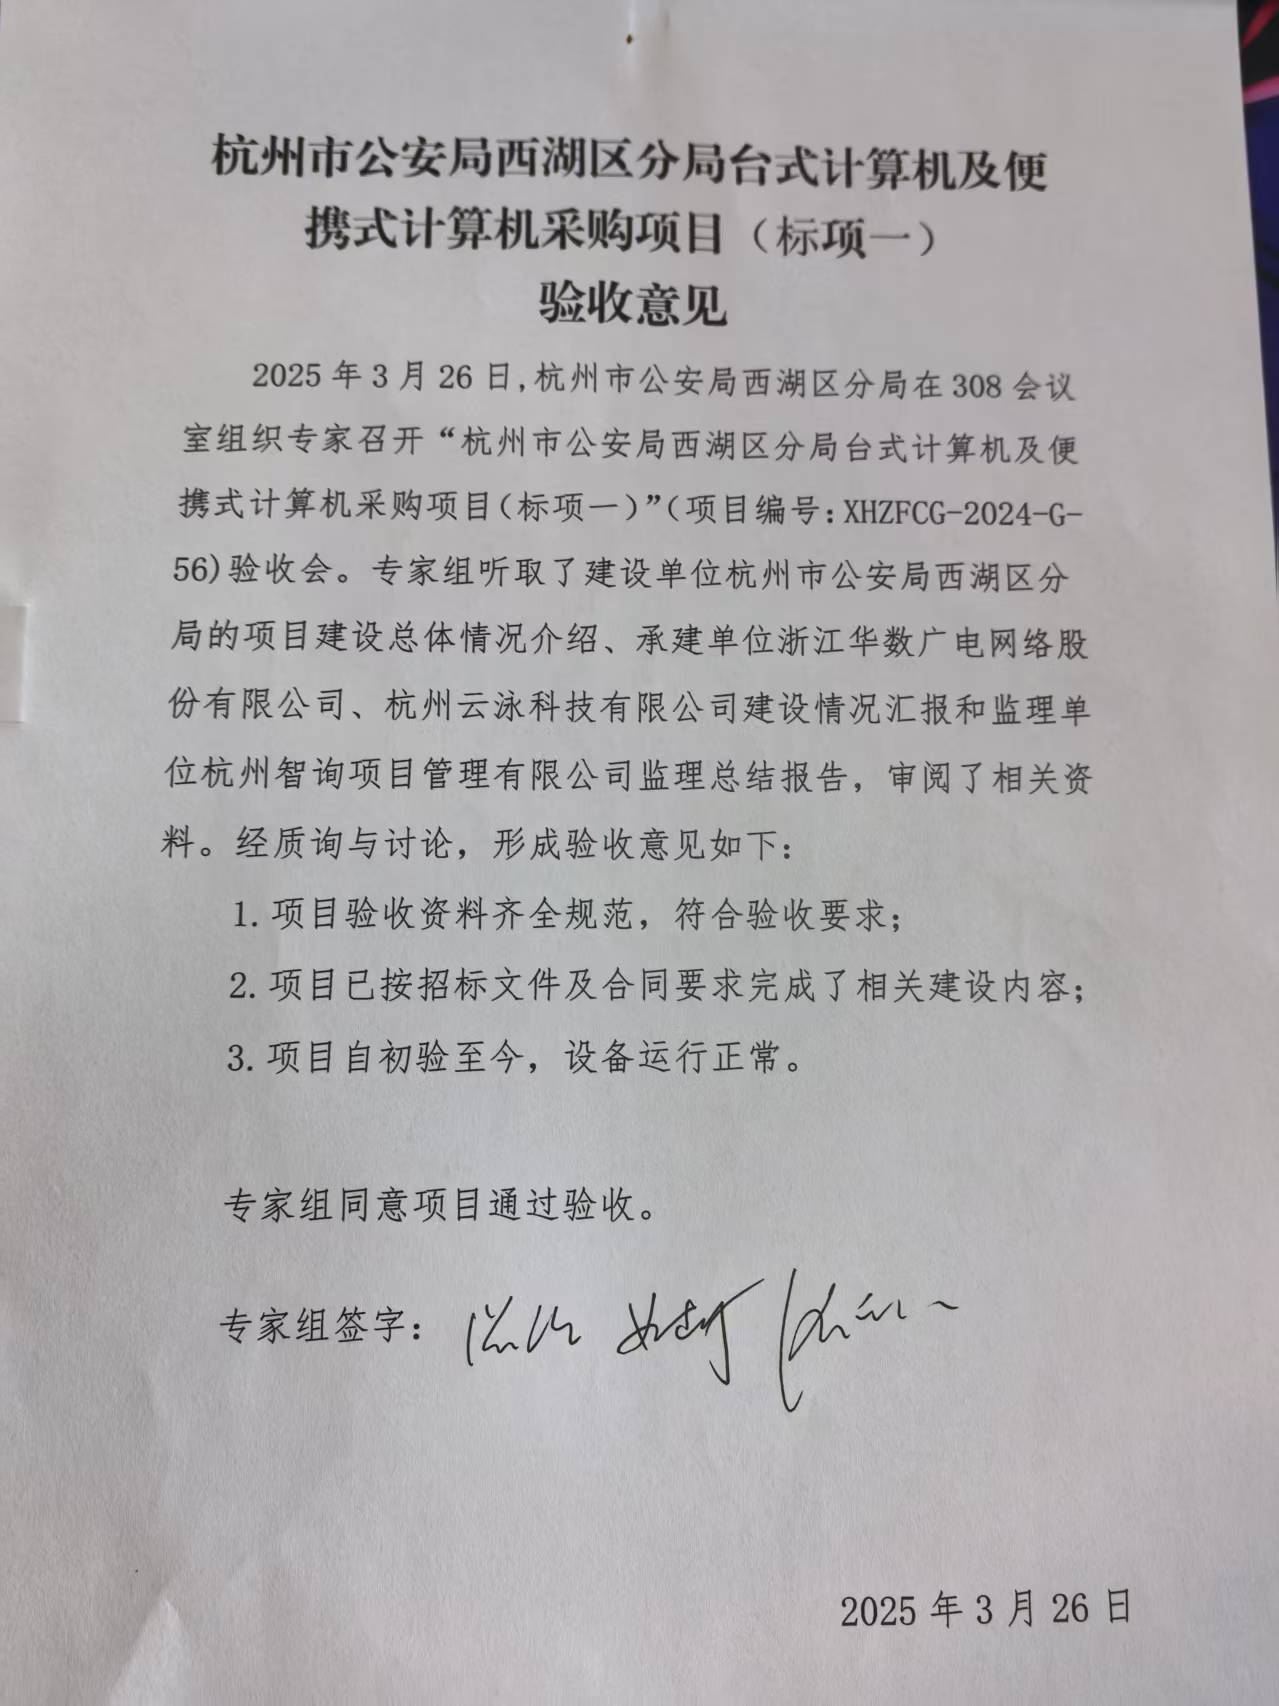 杭州市公安局西湖区分局台式计算机及便
携式计算机采购项目（标项一）
验收意见
2025年3月26日,杭州市公安局西湖区分局在308会议
室组织专家召开“杭州市公安局西湖区分局台式计算机及便
携式计算机采购项目(标项一)”(项目编号:XHZFCG-2024-G-
56)验收会。专家组听取了建设单位杭州市公安局西湖区分
局的项目建设总体情况介绍、承建单位浙江华数广电网络股
份有限公司、杭州云泳科技有限公司建设情况汇报和监理单
位杭州智询项目管理有限公司监理总结报告，审阅了相关资
料。经质询与讨论，形成验收意见如下：
1.项目验收资料齐全规范，符合验收要求；
2.项目已按招标文件及合同要求完成了相关建设内容；
3.项目自初验至今，设备运行正常。
专家组同意项目通过验收。
专家组签字：
2025年3月26日